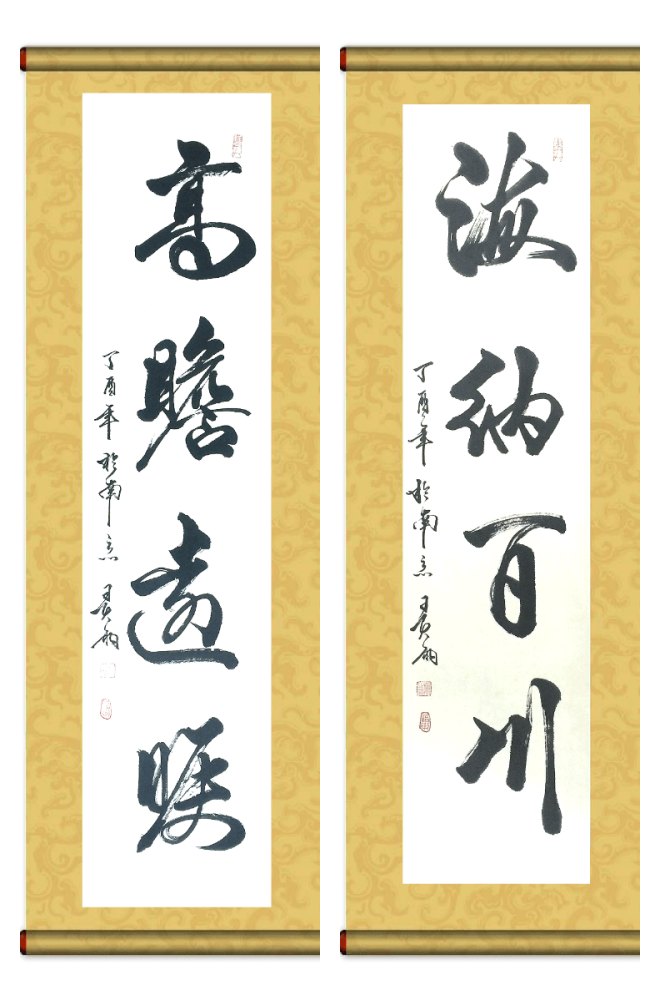 海納百川
丁酉年於南京
高瞻遠矚
丁酉年於南京